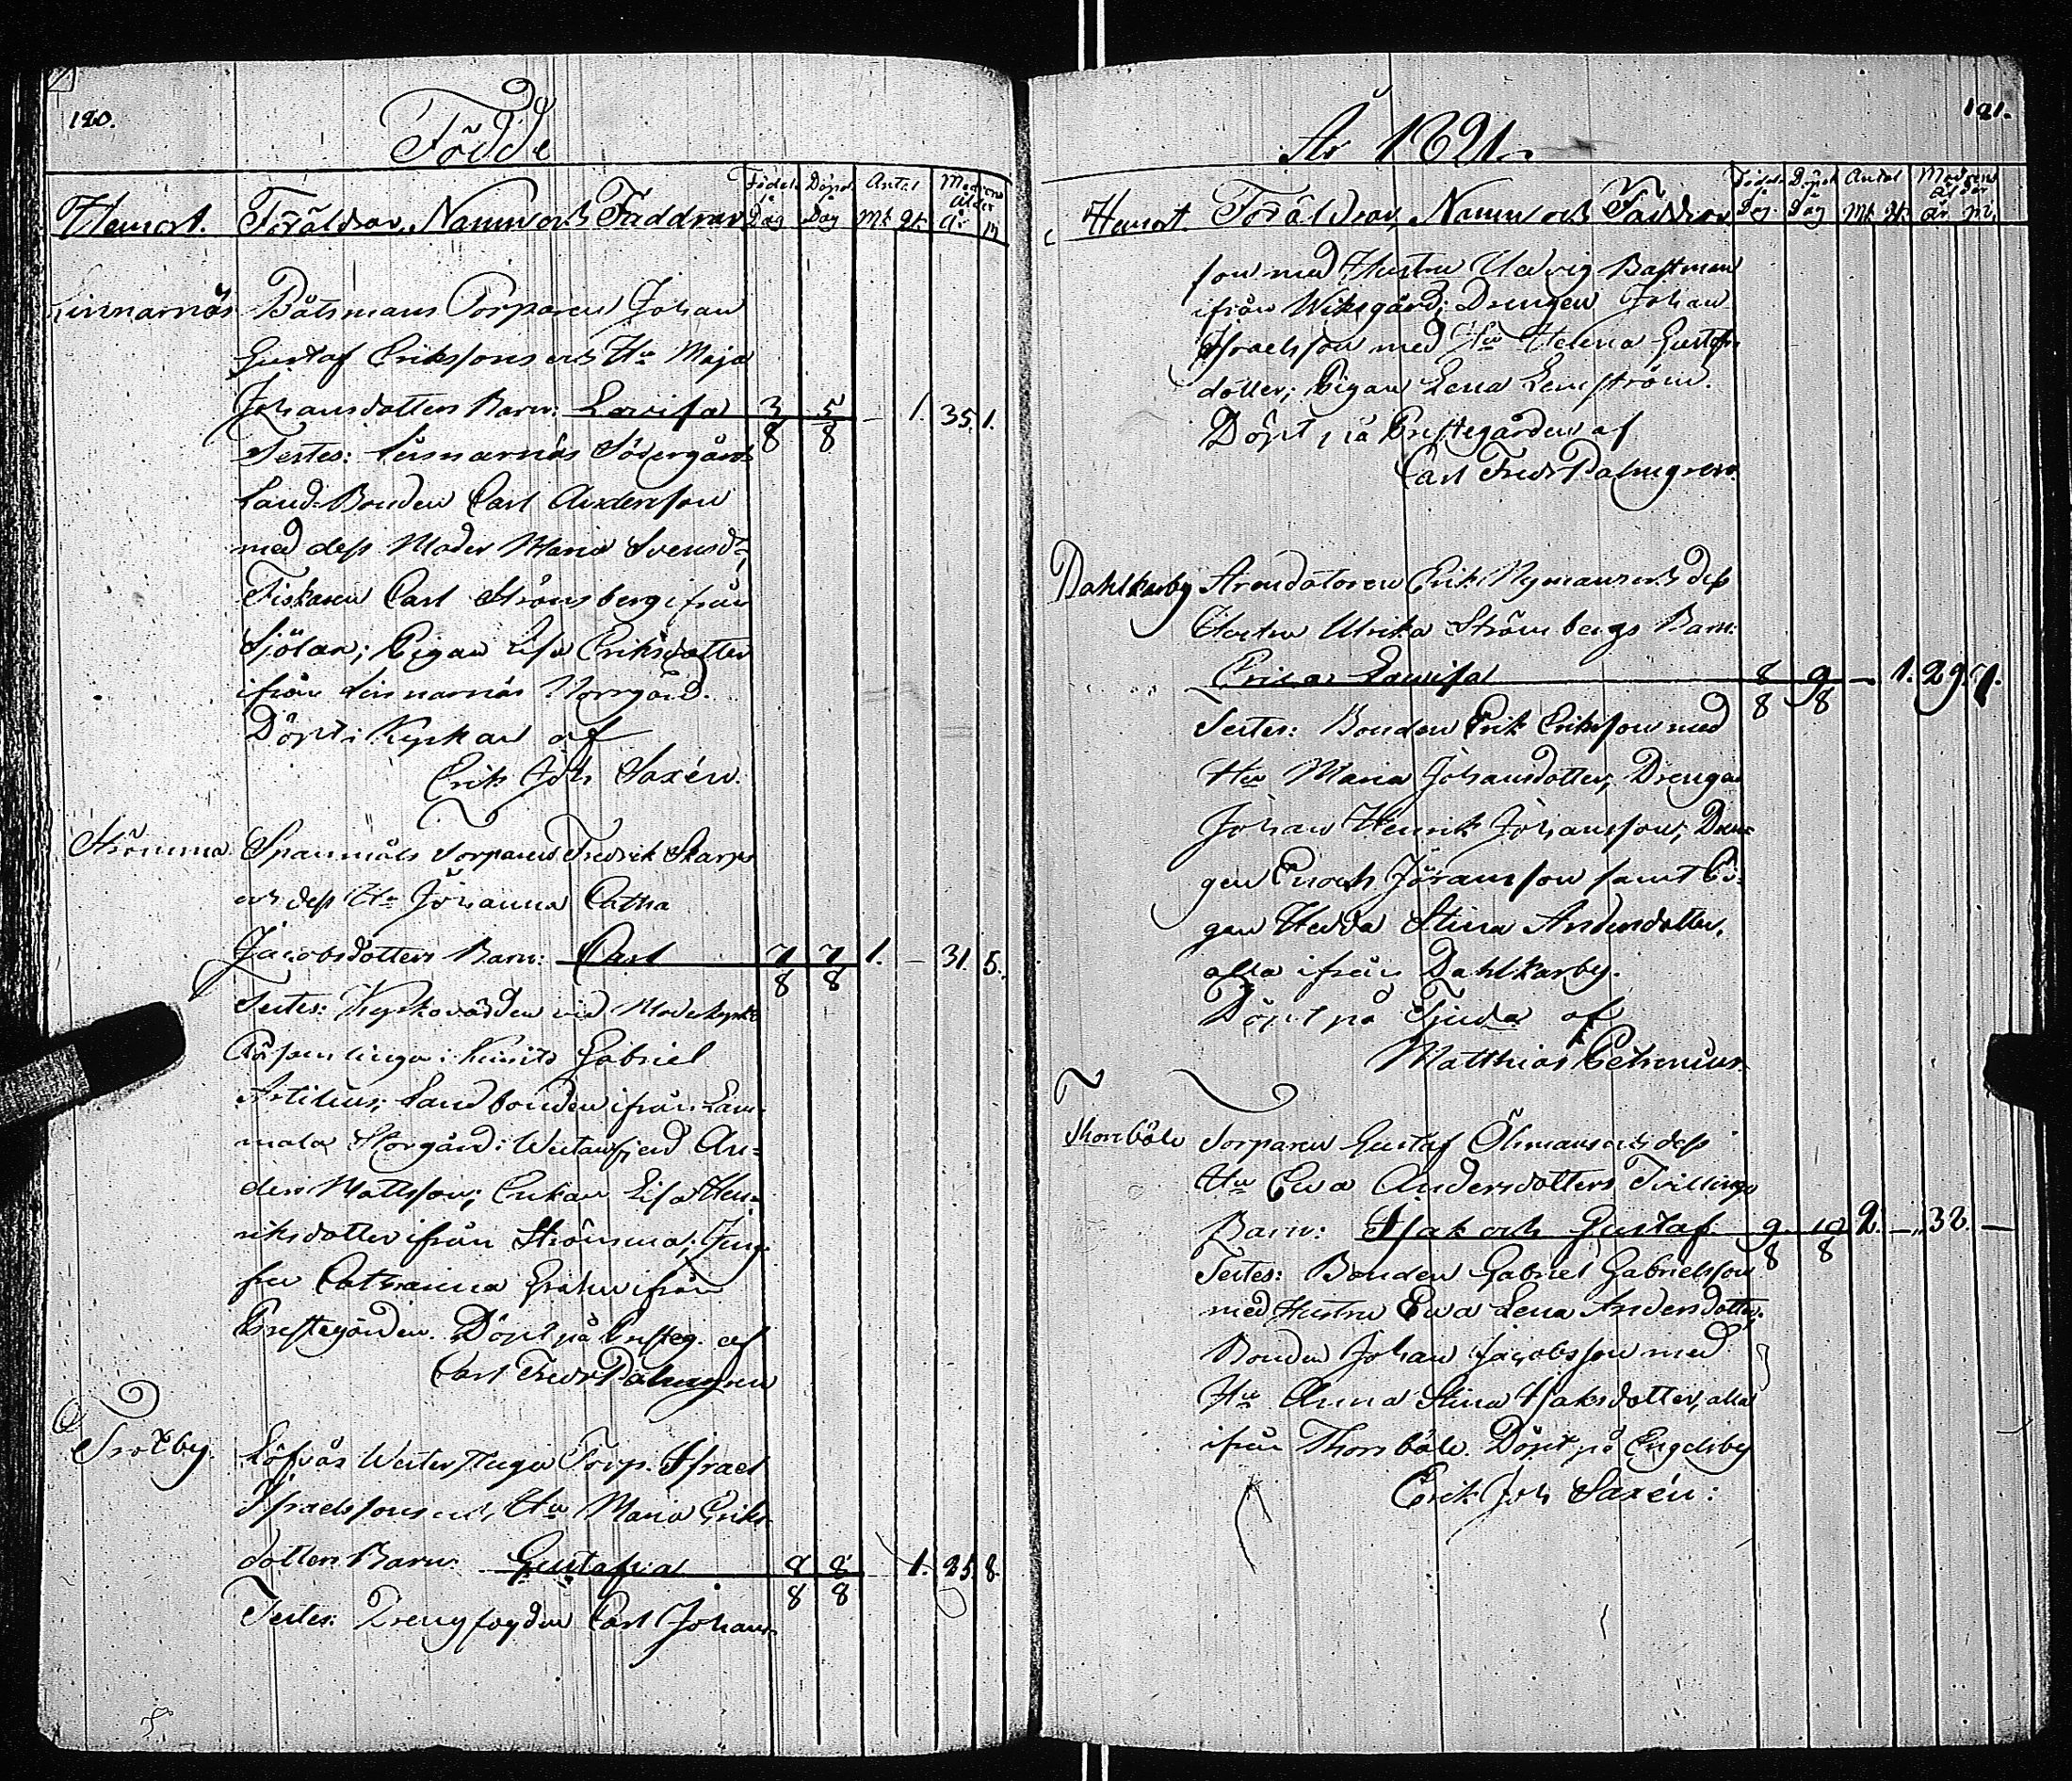 120.
Födde
Hemort. Föräldrar, Namn och Faddrar Födels Dag Döpels Dag Antal Mk Qk Modrens Ålder År M
Linnarnäs Båtsmans Torparen Johan
Gustaf Erikssons och Hu Maja
Johansdotters Barn: Lovisa 3/8 5/8 – 1. 35. 1.
Testes: Linnarnäs Södergårds
Land-Bonden Carl Andersson
med dess Moder Maria Svensdr,
Fiskaren Carl Strömsberg ifrån
Sjölax; Pigan Lisa Eriksdotter
ifrån Linnarnäs Norrgård.
Döpt i Kyrkan af
Erik Joh Saxén.
Strömma Spanmåls Torparens Fredrik Skarps
och dess Hu Johanna Catha
Jacobsdotters Barn: Carl 7/8 7/8 1. – 31. 5.
Testes: Kyrkovärden vid Moderkyrk
i Kimito Gabriel
Landbonden ifrån Lam-
mala Storgård i Westanfjerd An-
ders Mattsson; Enkan Lisa Hen-
riksdotter ifrån Strömma; Jung-
fru Catharina ifrån
Prestegården. Döpt på Presteg. af
Carl Fredr Palmgren
Trotby. Löfvås Westerstuga Torp. Israel
Israelssons och Hu Maria Eriks-
dotters Barn: Gustafva 8/8 8/8 1. 25. 8.
Testes: Drengfogden Carl Johans-
121.
År 1821.
Hemort. Föräldrar, Namn och Faddrar Födels Dag Döpels Dag Antal Mk Qk Modrens Ålder År M.
son med Hustru Hedvig Bastman
ifrån Wiksgård; Drengen Johan
Israelsson med Hu Helena Gustafs-
dotter; Pigan Lena Lemström.
Döpt på Prestegården af
Carl Fredr Palmgren.
Dahlkarby Arendatoren Erik Nymans och dess
Hustru Ulrika Strömbergs Barn:
Erica Lovisa 8/8 9/8 – 1. 29. 7.
Testes: Bonden Erik Eriksson med
Hu Maria Johansdotter; Drengen
Johan Henrik Johansson; Dren-
gen Enoch Jöransson samt Pi-
gan Hedda Stina Andersdotter,
alla ifrån Dahlkarby.
Döpt på Tjuda af
Matthias Petrenius.
Thorsböle Torparen Gustaf Öhmans och dess
Hu Ewa Andersdotters Tvillings
Barn: Isak och Gustaf 9/8 10/8 2. – 38. –
Testes: Bonden Gabriel Gabrielsson
med Hustru Ewa Lena Andersdotter;
Bonden Johan Jacobsson med
Hu Anna Stina Isaksdotter, alla
ifrån Thorsböle. Döpt på Engelsby
Erik Joh Saxén: